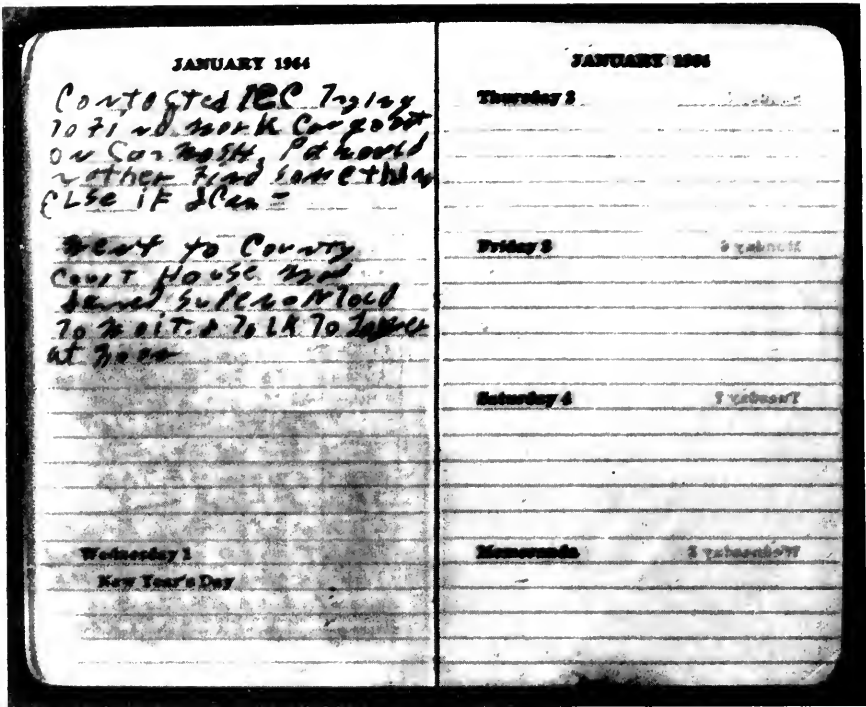 JANUARY 1964
Contacted IEC Trying
To Find work Can go out
on Car wash. Pd would
rather Find Something
ELSE IF I Can -
went to County
Court House
To wait & Talk To
at noon
Wednesday 1
New Year's Day
JANUARY 1964
Thursday 2
Friday 3
Saturday 4
Memoranda